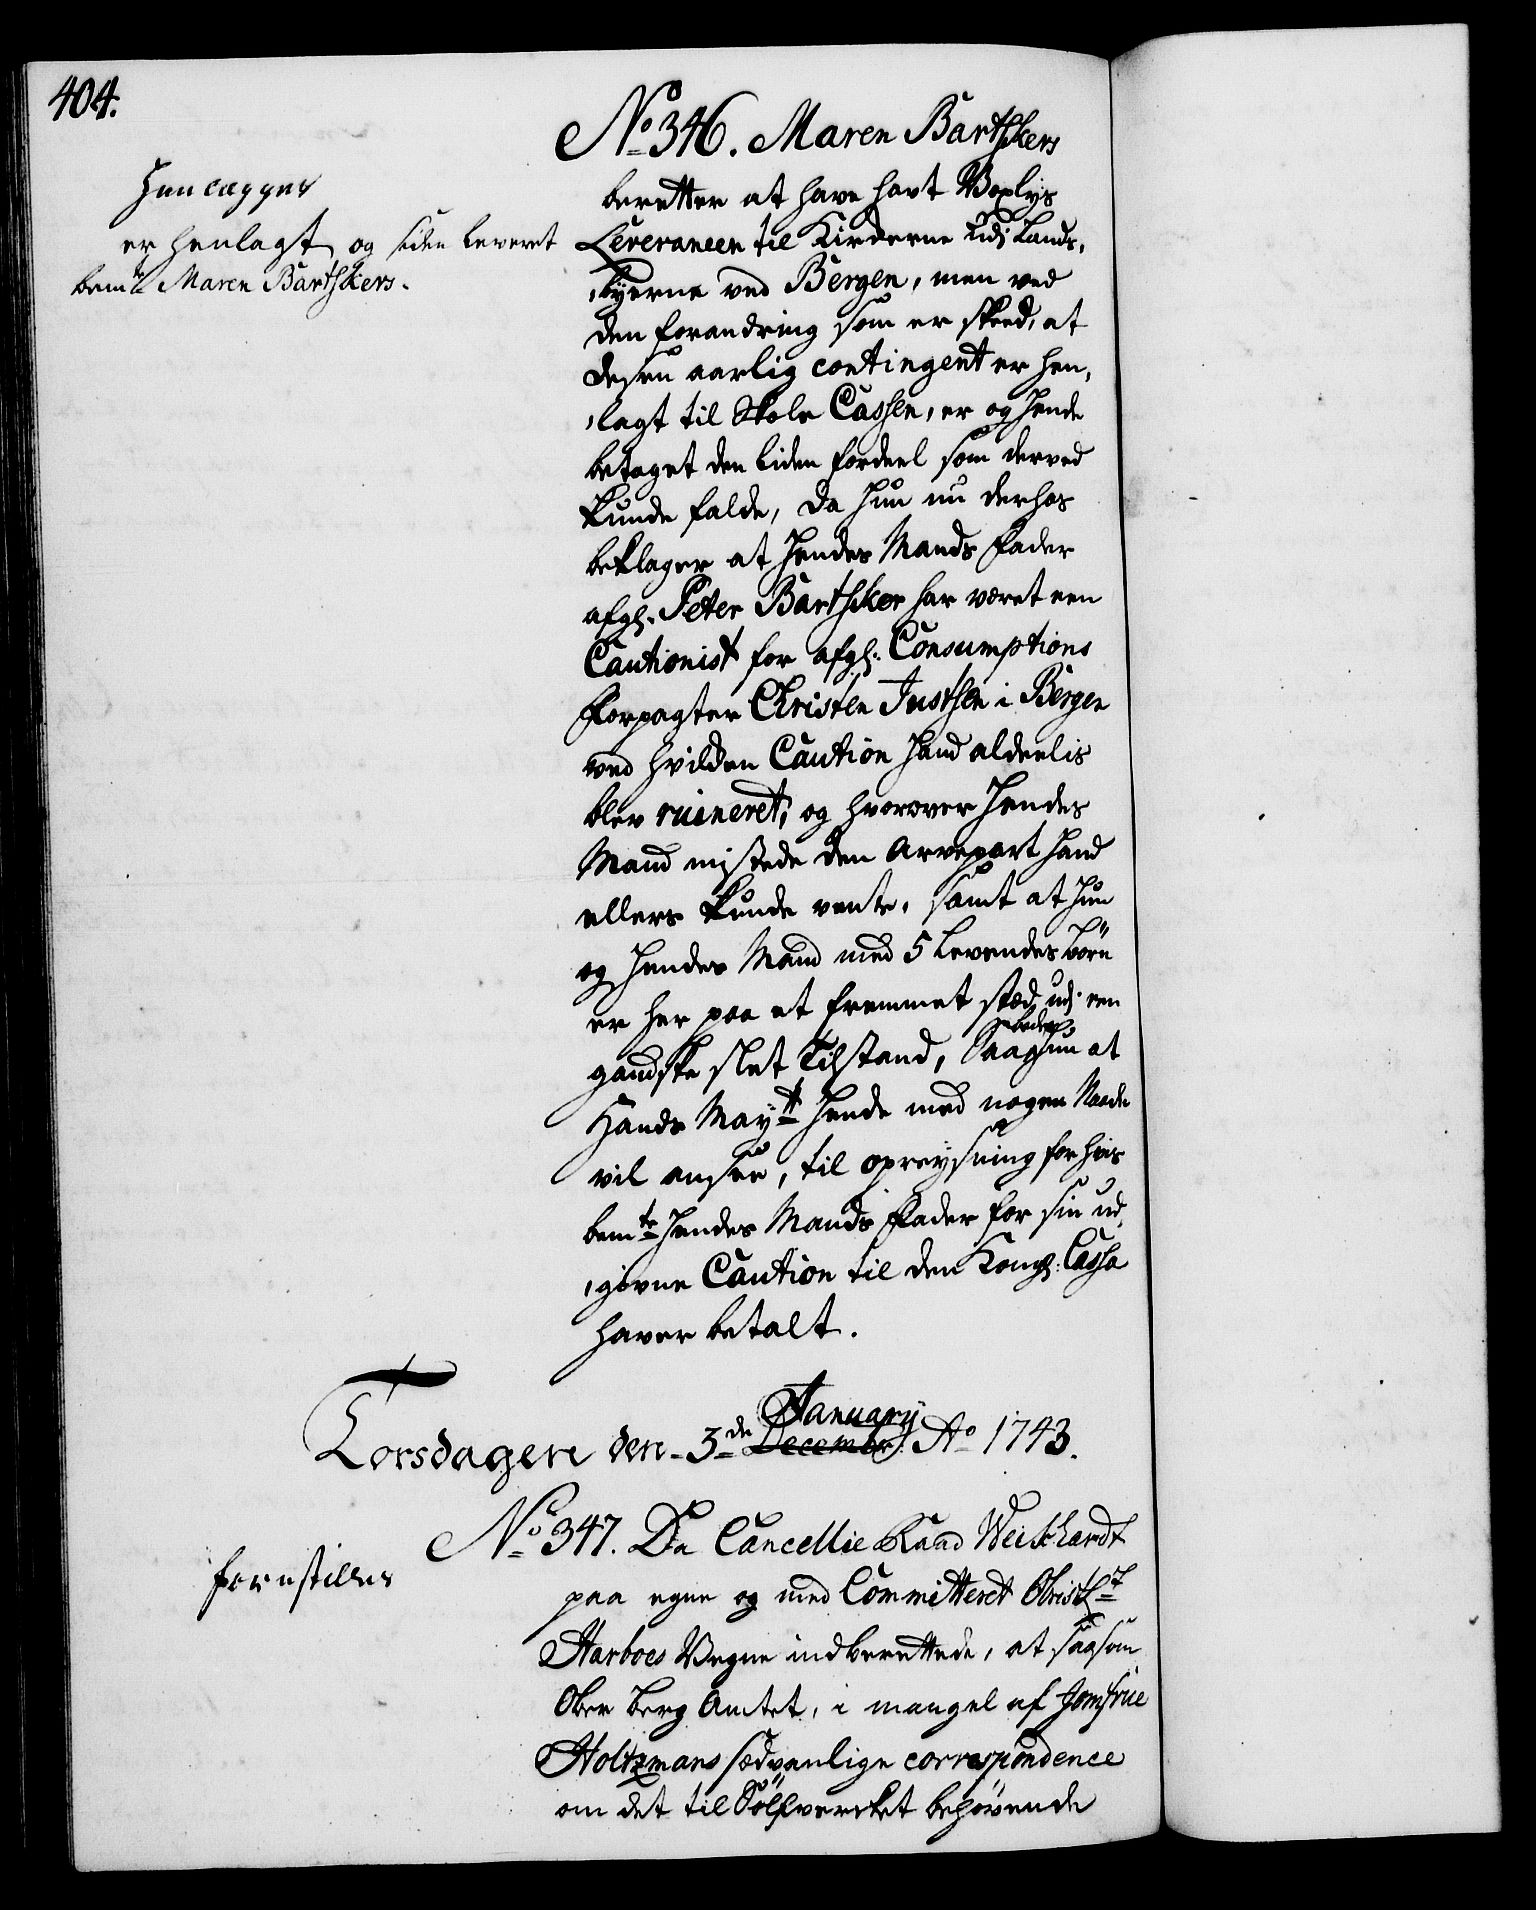 404.
No 346. Maren Barthskers
beretter at have havt Voxlys
Leverancen til Kirckerne udj Lands,
,byerne ved Bergen, men ved
den forandring som er skeed, at
desen aarlig contingent er hen,
,lagt til Skole Cassen, er og hende
betaget den liden fordeel som derved
kunde falde, da hun nu derhos
beklager at hendes Mands Fader
afgl. Peter Barthsker har været een
Cautionist for afgl: Consumptions
Forpagter Christen Justsen i Bergen
ved hvilcken Caution hand aldeelis
blev ruineret, og hvorover hendes
Mand mistede den Arvepart hand
ellers kunde vente, samt at hun
og hendes Mand med 5 levendes börn
er her paa et fremmet stæd udj een
gandske slet Tilstand, Saa beder hun at
Hands Maytt hende med nogen Naade
vil ansee, til opreysning for hvis
bemte hendes Mands Fader for sin ud,
,givne Caution til den Kongl: Cassa
haver betalt.
Henlægges
er henlagt og siden leveret
bemte Maren Barthskers.
Torsdagen den 3de January Decembr. Ao 1743.
No 347. Da Cancellie Raad Weickhardt
paa egne og med Committeret Obristlt
Harboes Vegne indberettede, at saasom
Ober berg Amtet, i mangel af Jomfrue
Holtzmans sædvanlige correspondence
om det til Sölfvercket behövende
forestilles